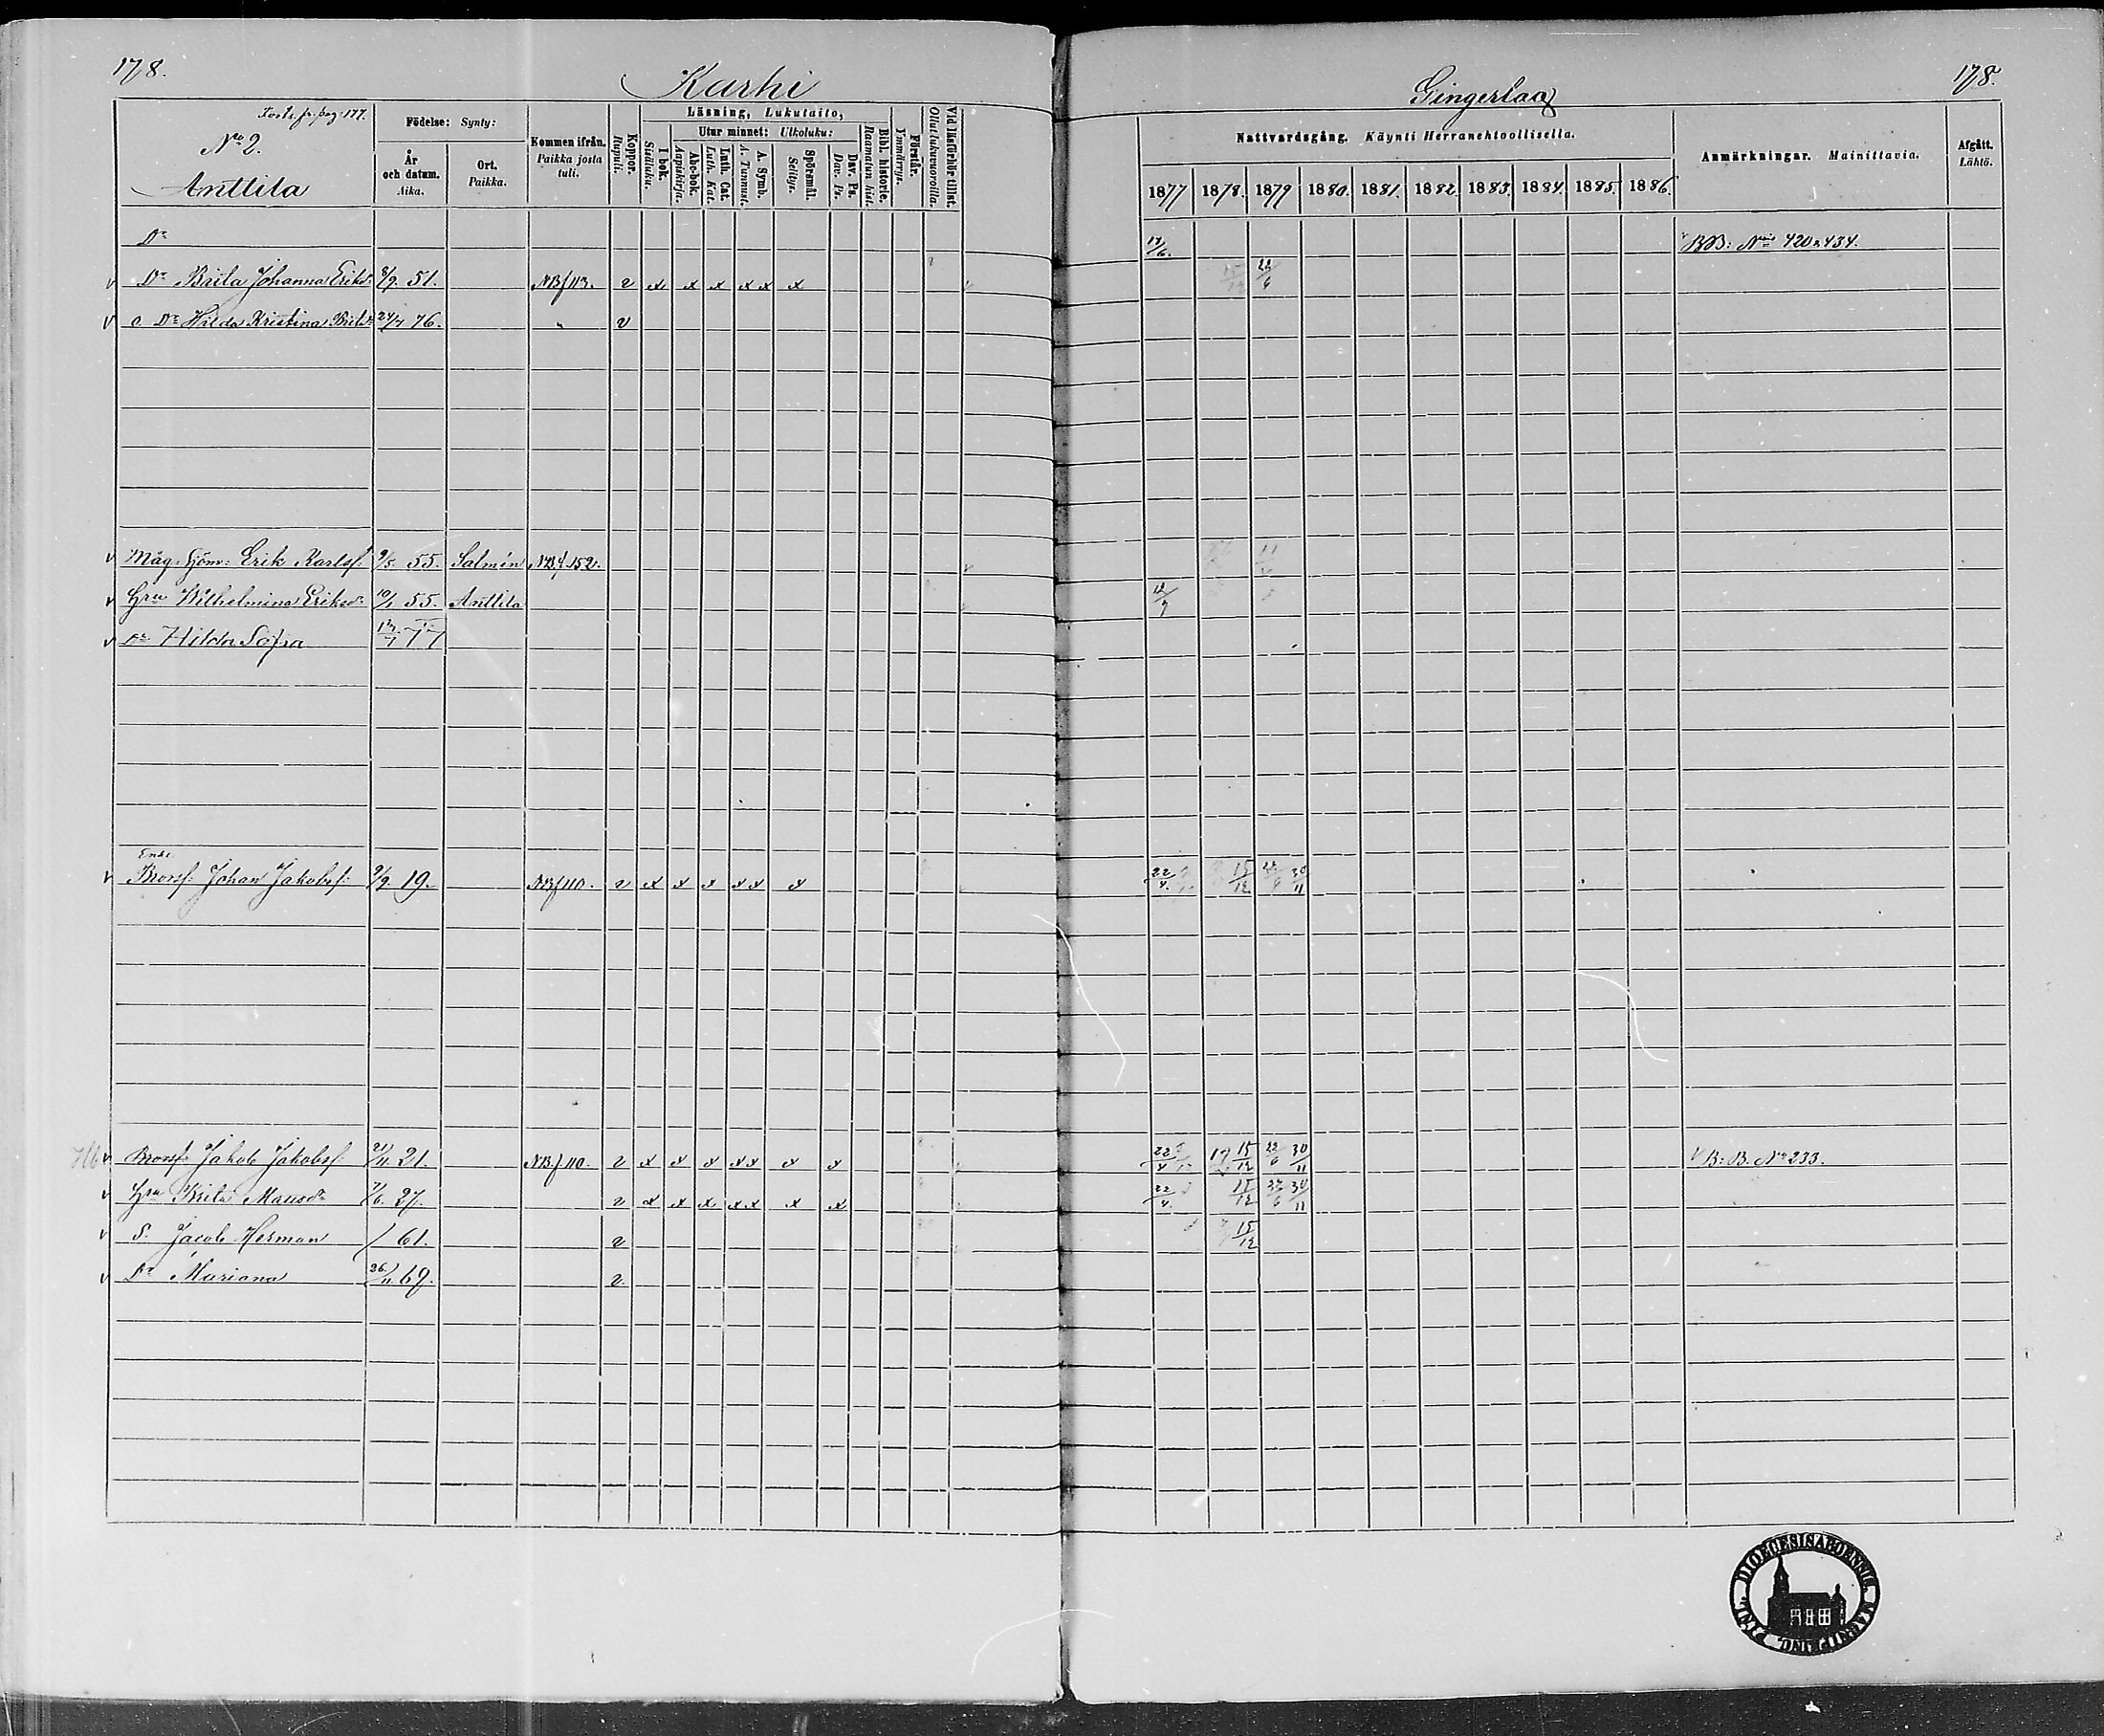 178.
Karhi
Forts. fr. pag. 177.
No 2.
Anttila
Födelse: Synty:
År och datum. Aika.
Ort. Paikka.
Kommen ifrån. Paikka josta tuli.
Koppor. Rupuli.
Läsning, Lukutaito,
I bok. Sisäluku.
Utur minnet: Ulkoluku:
Abc-bok. Aapiskirja.
Luth. Cat. Luth. Kat.
A. Symb. A. Tunnust.
Spörsmål. Selitys.
Dav. Ps. Dav. Ps.
Bibl. historie. Raamatun hist.
Förstår. Ymmärrys.
Vid läsförhör tillst. Ollut lukuvuoroilla.
Dr
v Dr Brita Johanna Eriksdr 8/9 51. NB f 113. v x x x x x x
v o Dr Hilda Kristina 24/7 76. " v
v Måg. Erik Karlsf. 9/5 55. Salmin NB f 152.
v Hru Wilhelmina Eriksdr 10/1 55. Anttila
v Dr Hilda Sofia 77
Enkl.
v Brorsf. Johan Jakobsf. 9/9 19. NB f 110. v x x x x x x
v Brorsf. Jakob Jakobsf. 21/11 21. NB f 110. v x x x x x x x
v Hru Brita Mansdr 7/6 27. v x x x x x x x
v S. Jacob Herman / 61. v
v Dr Mariana 26/11 69. v
Gingerlag
178.
Nattvardsgång. Käynti Herranehtoollisella.
Anmärkningar. Mainittavia.
Afgått. Lähtö.
1877 1878. 1879 1880. 1881. 1882. 1883. 1884. 1885. 1886.
17/6. BB: No 420 & 434.
15/12 22/6
12/7
22/4. 15/12 22/6 30/11
22/4 15/12 22/6 30/11 B: B. No 233.
22/4. 15/12 22/6 30/11
15/12
DIOECESIS ABOENSIS